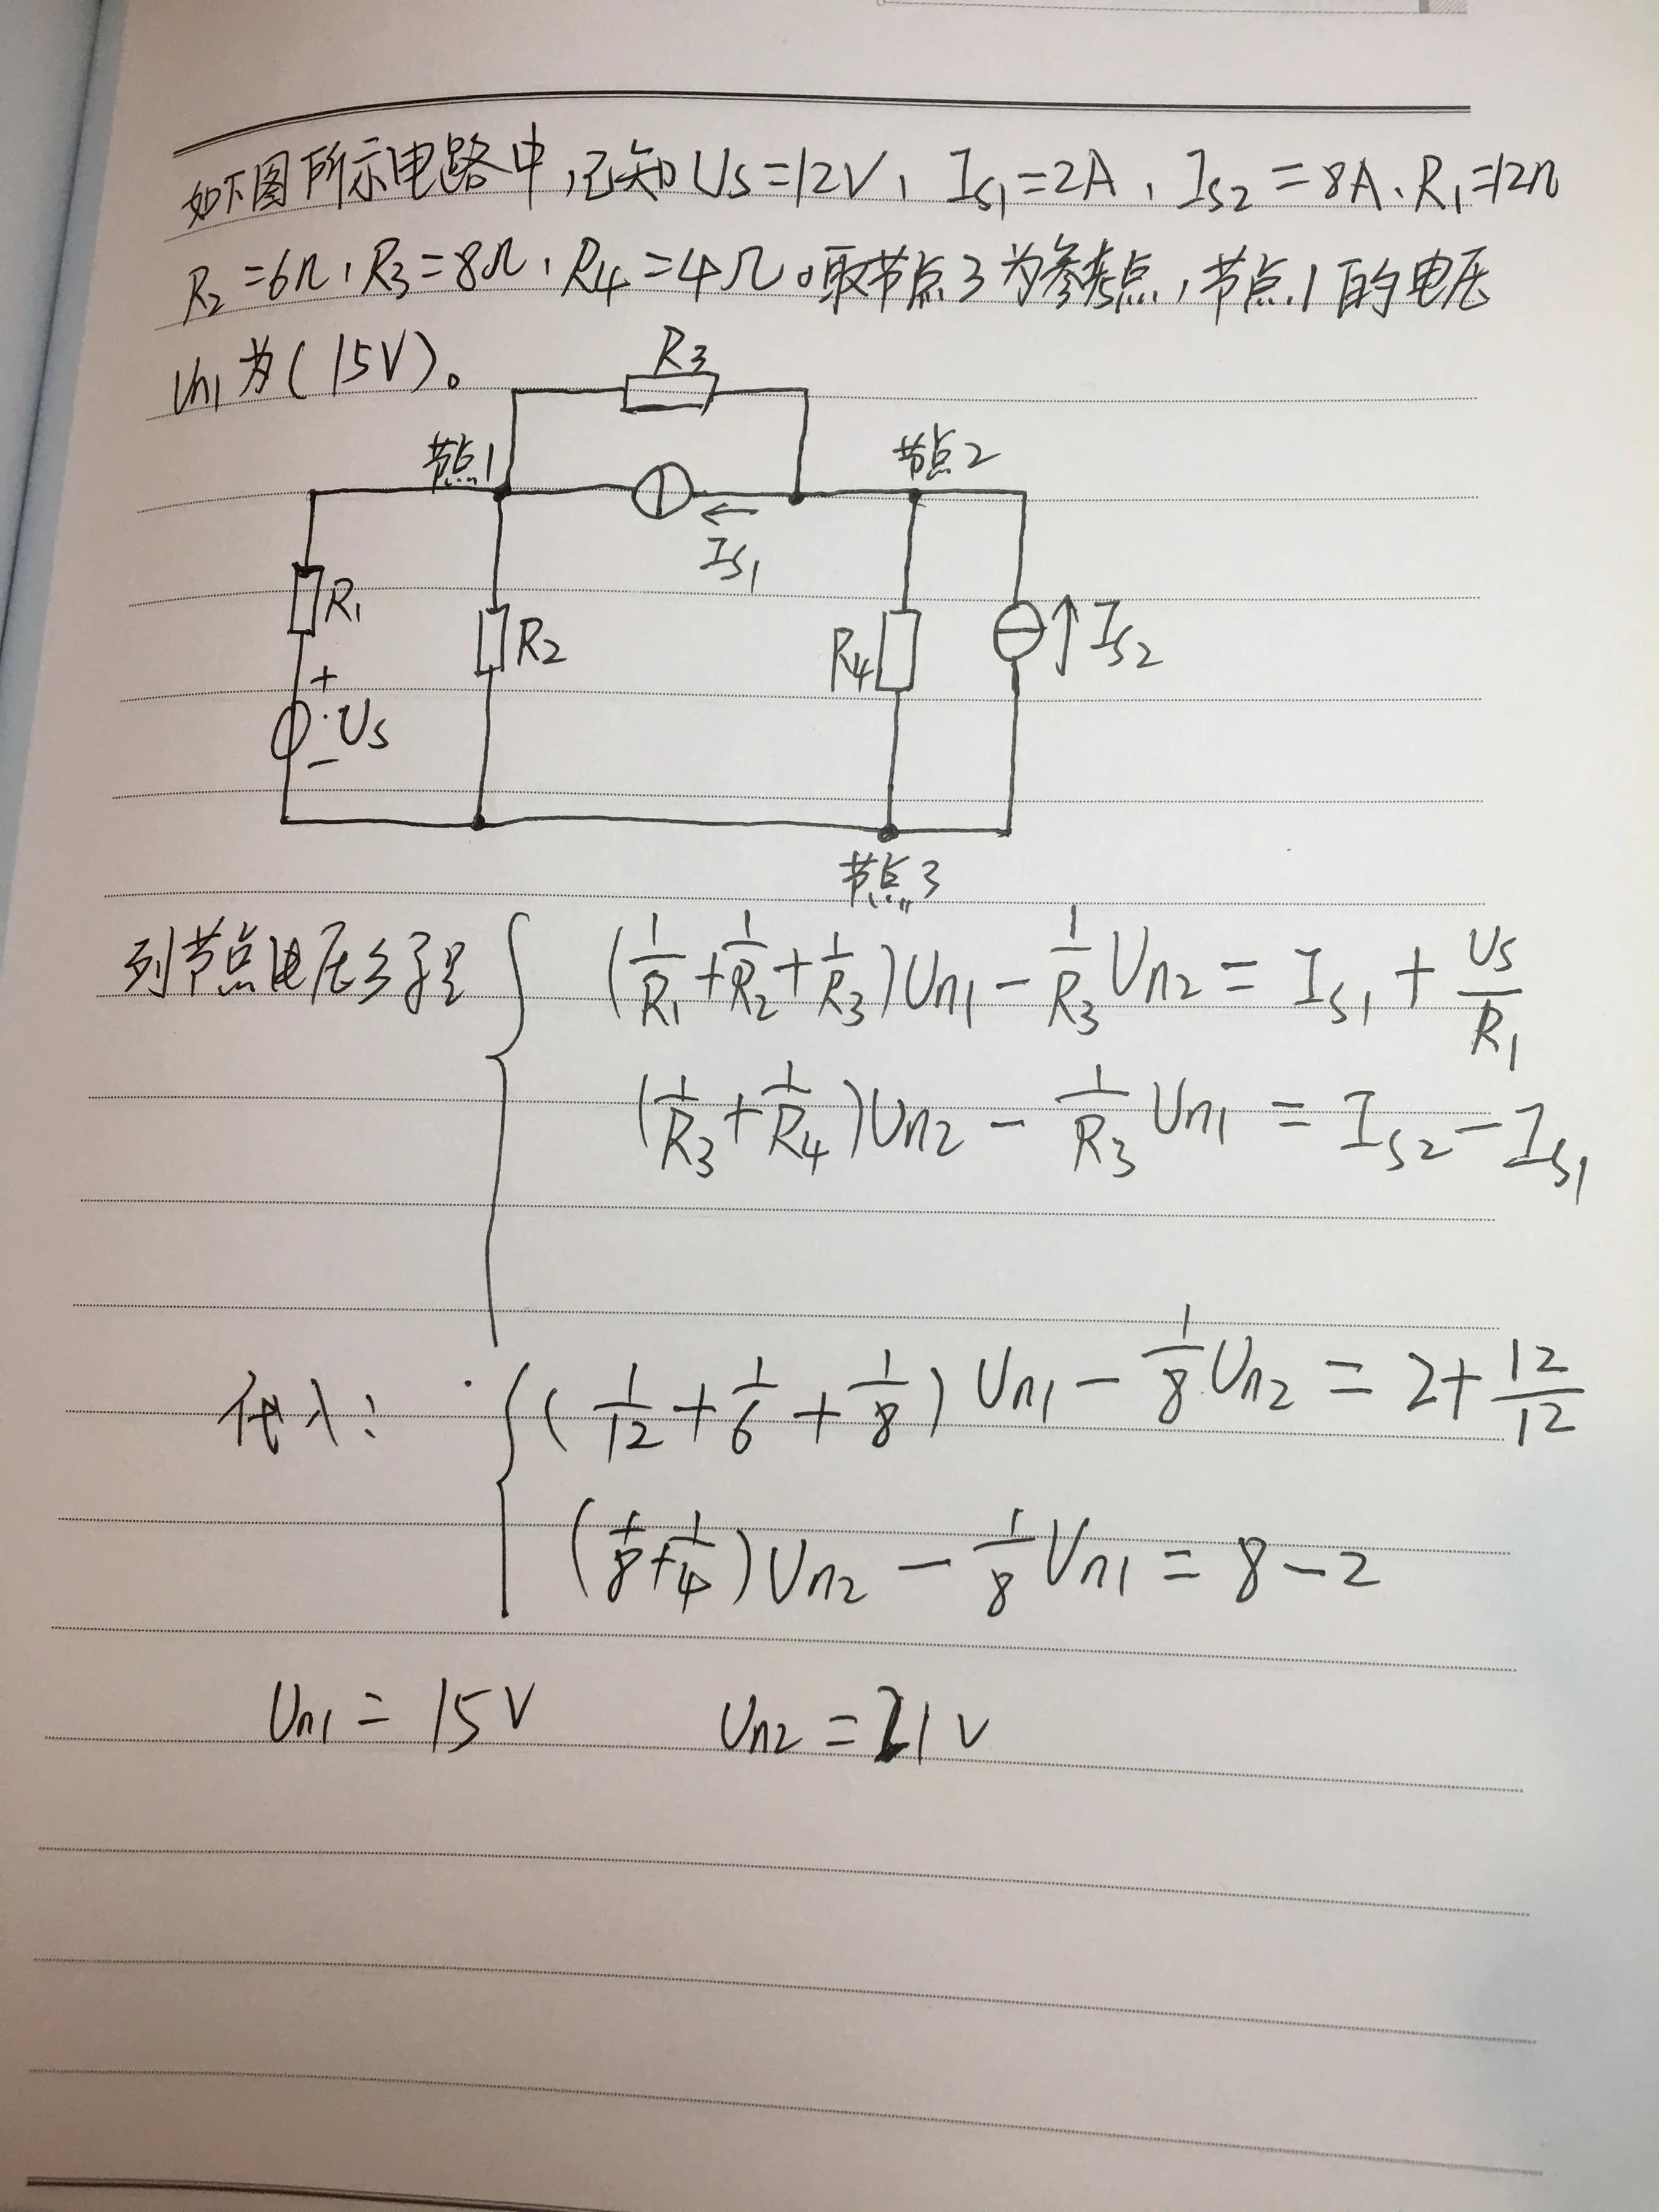 如下图所示电路中,已知Us=12V,Is1=2A,Is2=8A、R1=12Ω
R2=6Ω,R3=8Ω,R4=4Ω。取节点3为参考点,节点1的电压
Un1为(15V)。
R3
节点1
节点2
Is1
R1
R2
R4
Is2
+
Us
-
节点3
列节点电压方程 { (1/R1+1/R2+1/R3)Un1-1/R3Un2=Is1+Us/R1
(1/R3+1/R4)Un2-1/R3Un1=Is2-Is1
代入: { (1/12+1/6+1/8)Un1-1/8Un2=2+12/12
(1/8+1/4)Un2-1/8Un1=8-2
Un1=15V Un2=21V